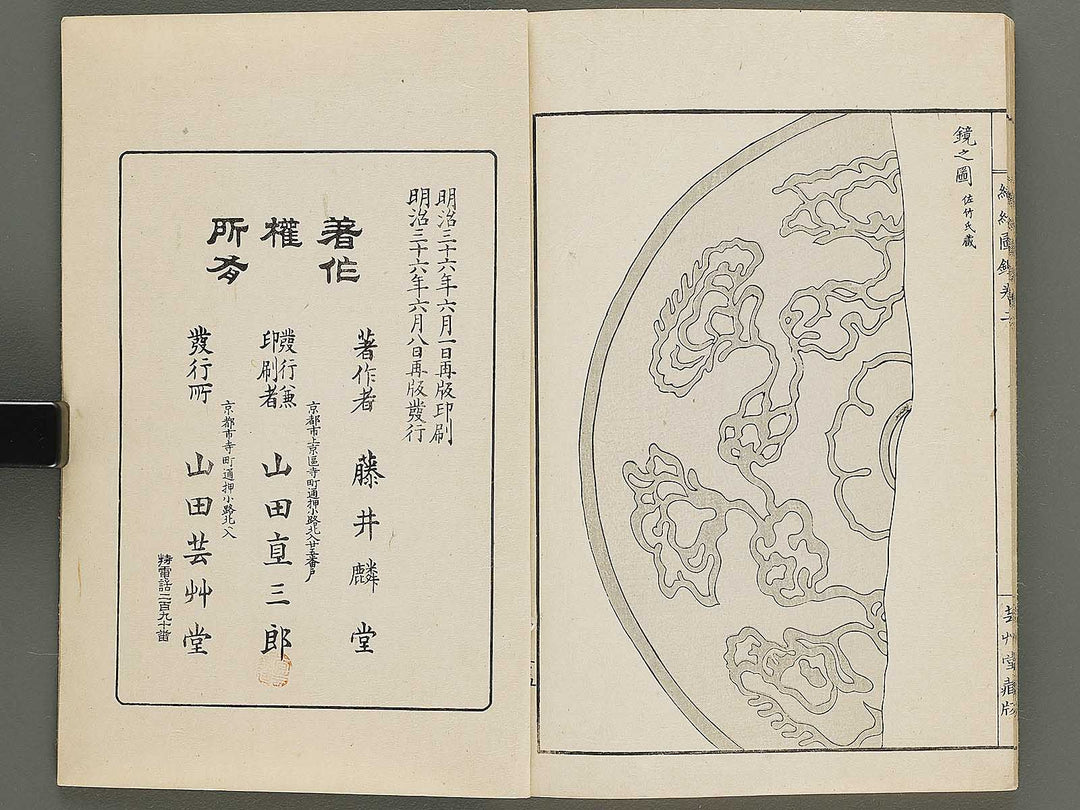 鏡之圖
佐竹氏藏
芸艸堂藏版
明治三十六年六月一日再版印刷
明治三十六年六月八日再版發行
著作
權
所有
著作者 藤井麟堂
京都市上京區寺町通押小路北入廿五番戶
發行兼
印刷者
山田直三郎
京都市寺町通押小路北入
發行所 山田芸艸堂
特電話二百九十番